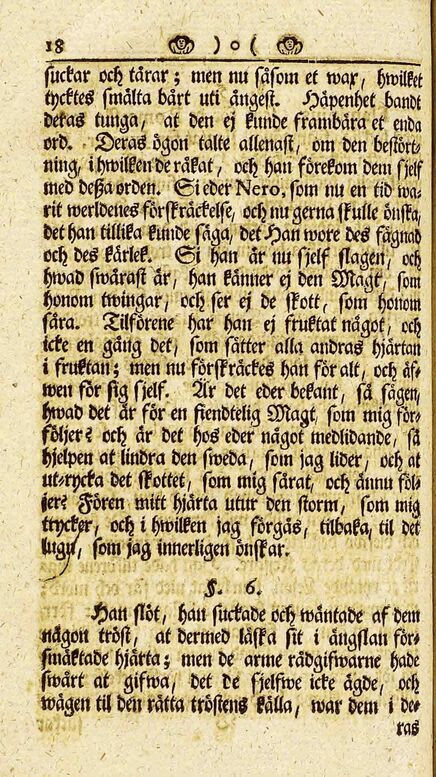 18 ) o (
suckar och tårar; men nu såsom et wax, hwilket
tycktes smälta bårt uti ångest. Häpenhet bandt
deras tunga, at den ej kunde frambära et enda
ord. Deras ögon talte allenast, om den bestört-
ning, i hwilken de råkat, och han förekom dem sjelf
med deßa orden. Si eder Nero, som nu en tid wa-
rit werldenes förskräckelse, och nu gerna skulle önska,
det han tillika kunde säga, det Han wore des fägnad
och des kärlek. Si han är nu sjelf slagen, och
hwad swårast är, han känner ej den Magt, som
honom twingar, och ser ej de skott, som honom
såra. Tilförene har han ej fruktat något, och
icke en gång det, som sätter alla andras hjärtan
i fruktan; men nu förskräckes han för alt, och äf-
wen för sig sjelf. Är det eder bekant, så sägen,
hwad det är för en fiendtelig Magt, som mig för-
följer? och är det hos eder något medlidande, så
hjelpen at lindra den sweda, som jag lider, och at
utrycka det skottet, som mig sårat, och ännu föl-
jer? Fören mitt hjärta utur den storm, som mig
trycker, och i hwilken jag förgås, tilbaka, til det
lugn, som jag innerligen önskar.
§. 6.
Han slöt, han suckade och wäntade af dem
någon tröst, at dermed läska sit i ängslan för-
smäktade hjärta; men de arme rådgifwarne hade
swårt at gifwa, det de sjelfwe icke ägde, och
wägen til den rätta tröstens källa, war dem i de-
ras